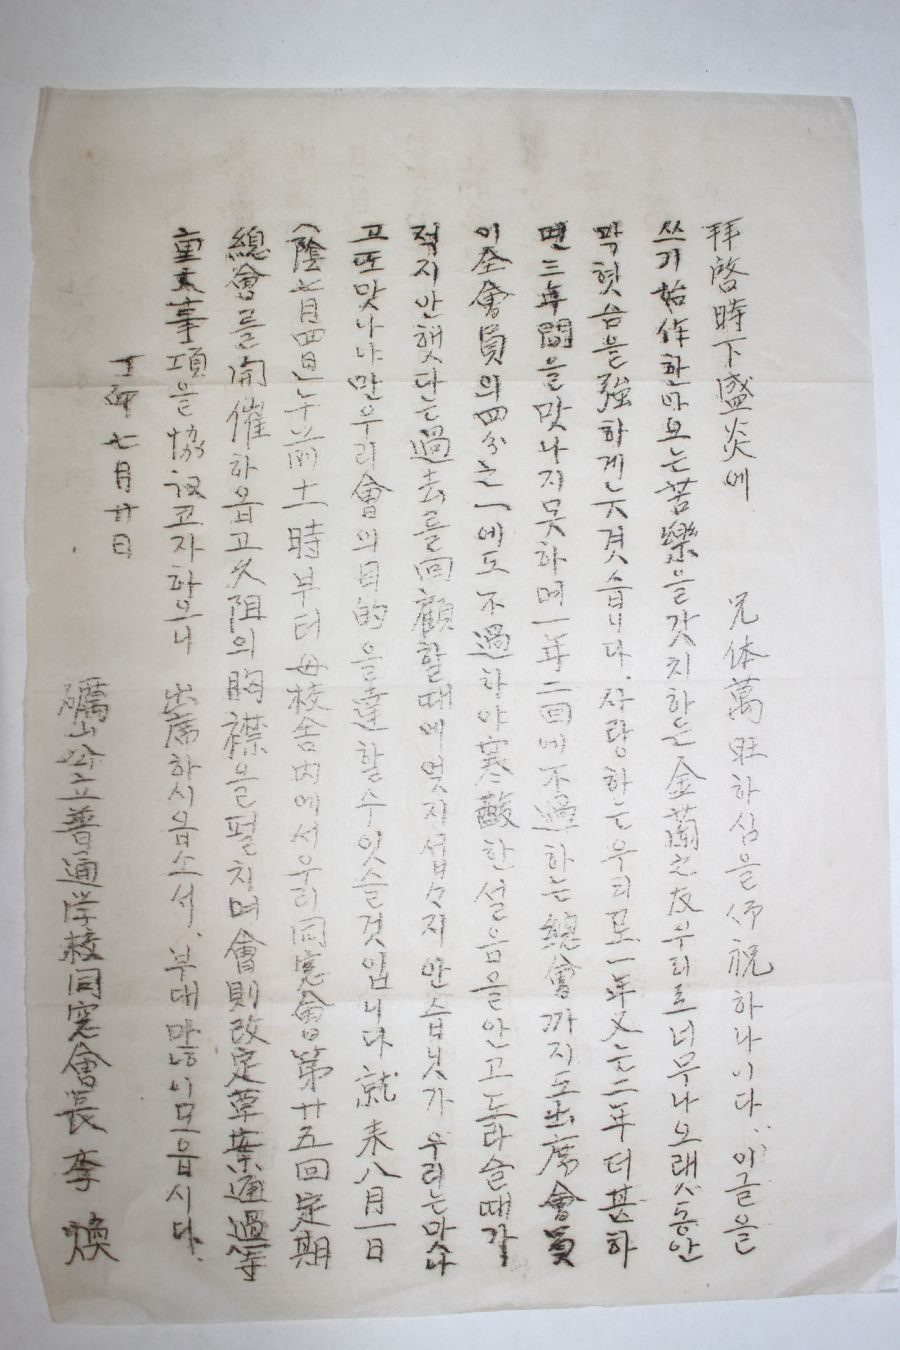 拜啓時下盛炎에 兄体萬旺하심을 仰祝하나니다. 이글을
쓰기始作한마오는苦樂을갓치하든金蘭之友우리로너무나오래ㅅ동안
막혓슴을强하게늣겻습니다.사랑하는우리로一年又는二年더甚하
면三年間을맛나지못하며一年二回에不過하는總會까지도出席會員
이全會員의四分之一에도不過하야寒酸한설음을안고도라슬때가
적지안햇다는過去를回顧할때에엇지섭々지안슴닛가우리는맛나
고또맛나야만우리會의目的을達할수잇슬것임니다就未八月一日
(陰七月四日)午前十一時부터母校舍内에서우리同窓會第廿五回定期
總會를開催하옵고久阻의胸襟을펼치며會則改定草案通過等
重大事項을協議코자하오니 出席하시옵소서.부대만히모읍시다.
丁卯七月廿日
礪山公立普通学校同窓會長 李 煥